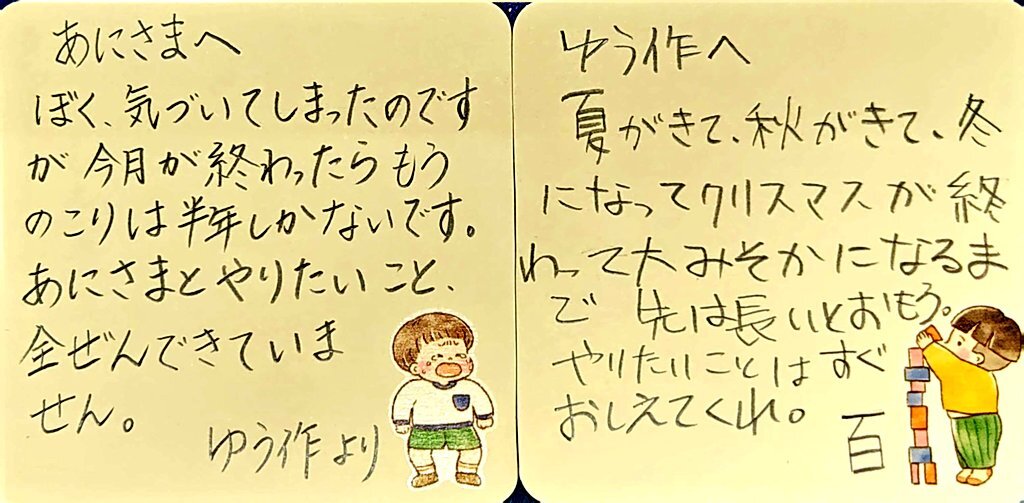 あにさまへ
ぼく、気づいてしまったのです
が今月が終わったらもう
のこりは半年しかないです。
あにさまとやりたいこと、
全ぜんできていま
せん。
ゆう作より
ゆう作へ
夏がきて、秋がきて、冬
になってクリスマスが終
わって大みそかになるま
で 先は長いとおもう。
やりたいことはすぐ
おしえてくれ。
百